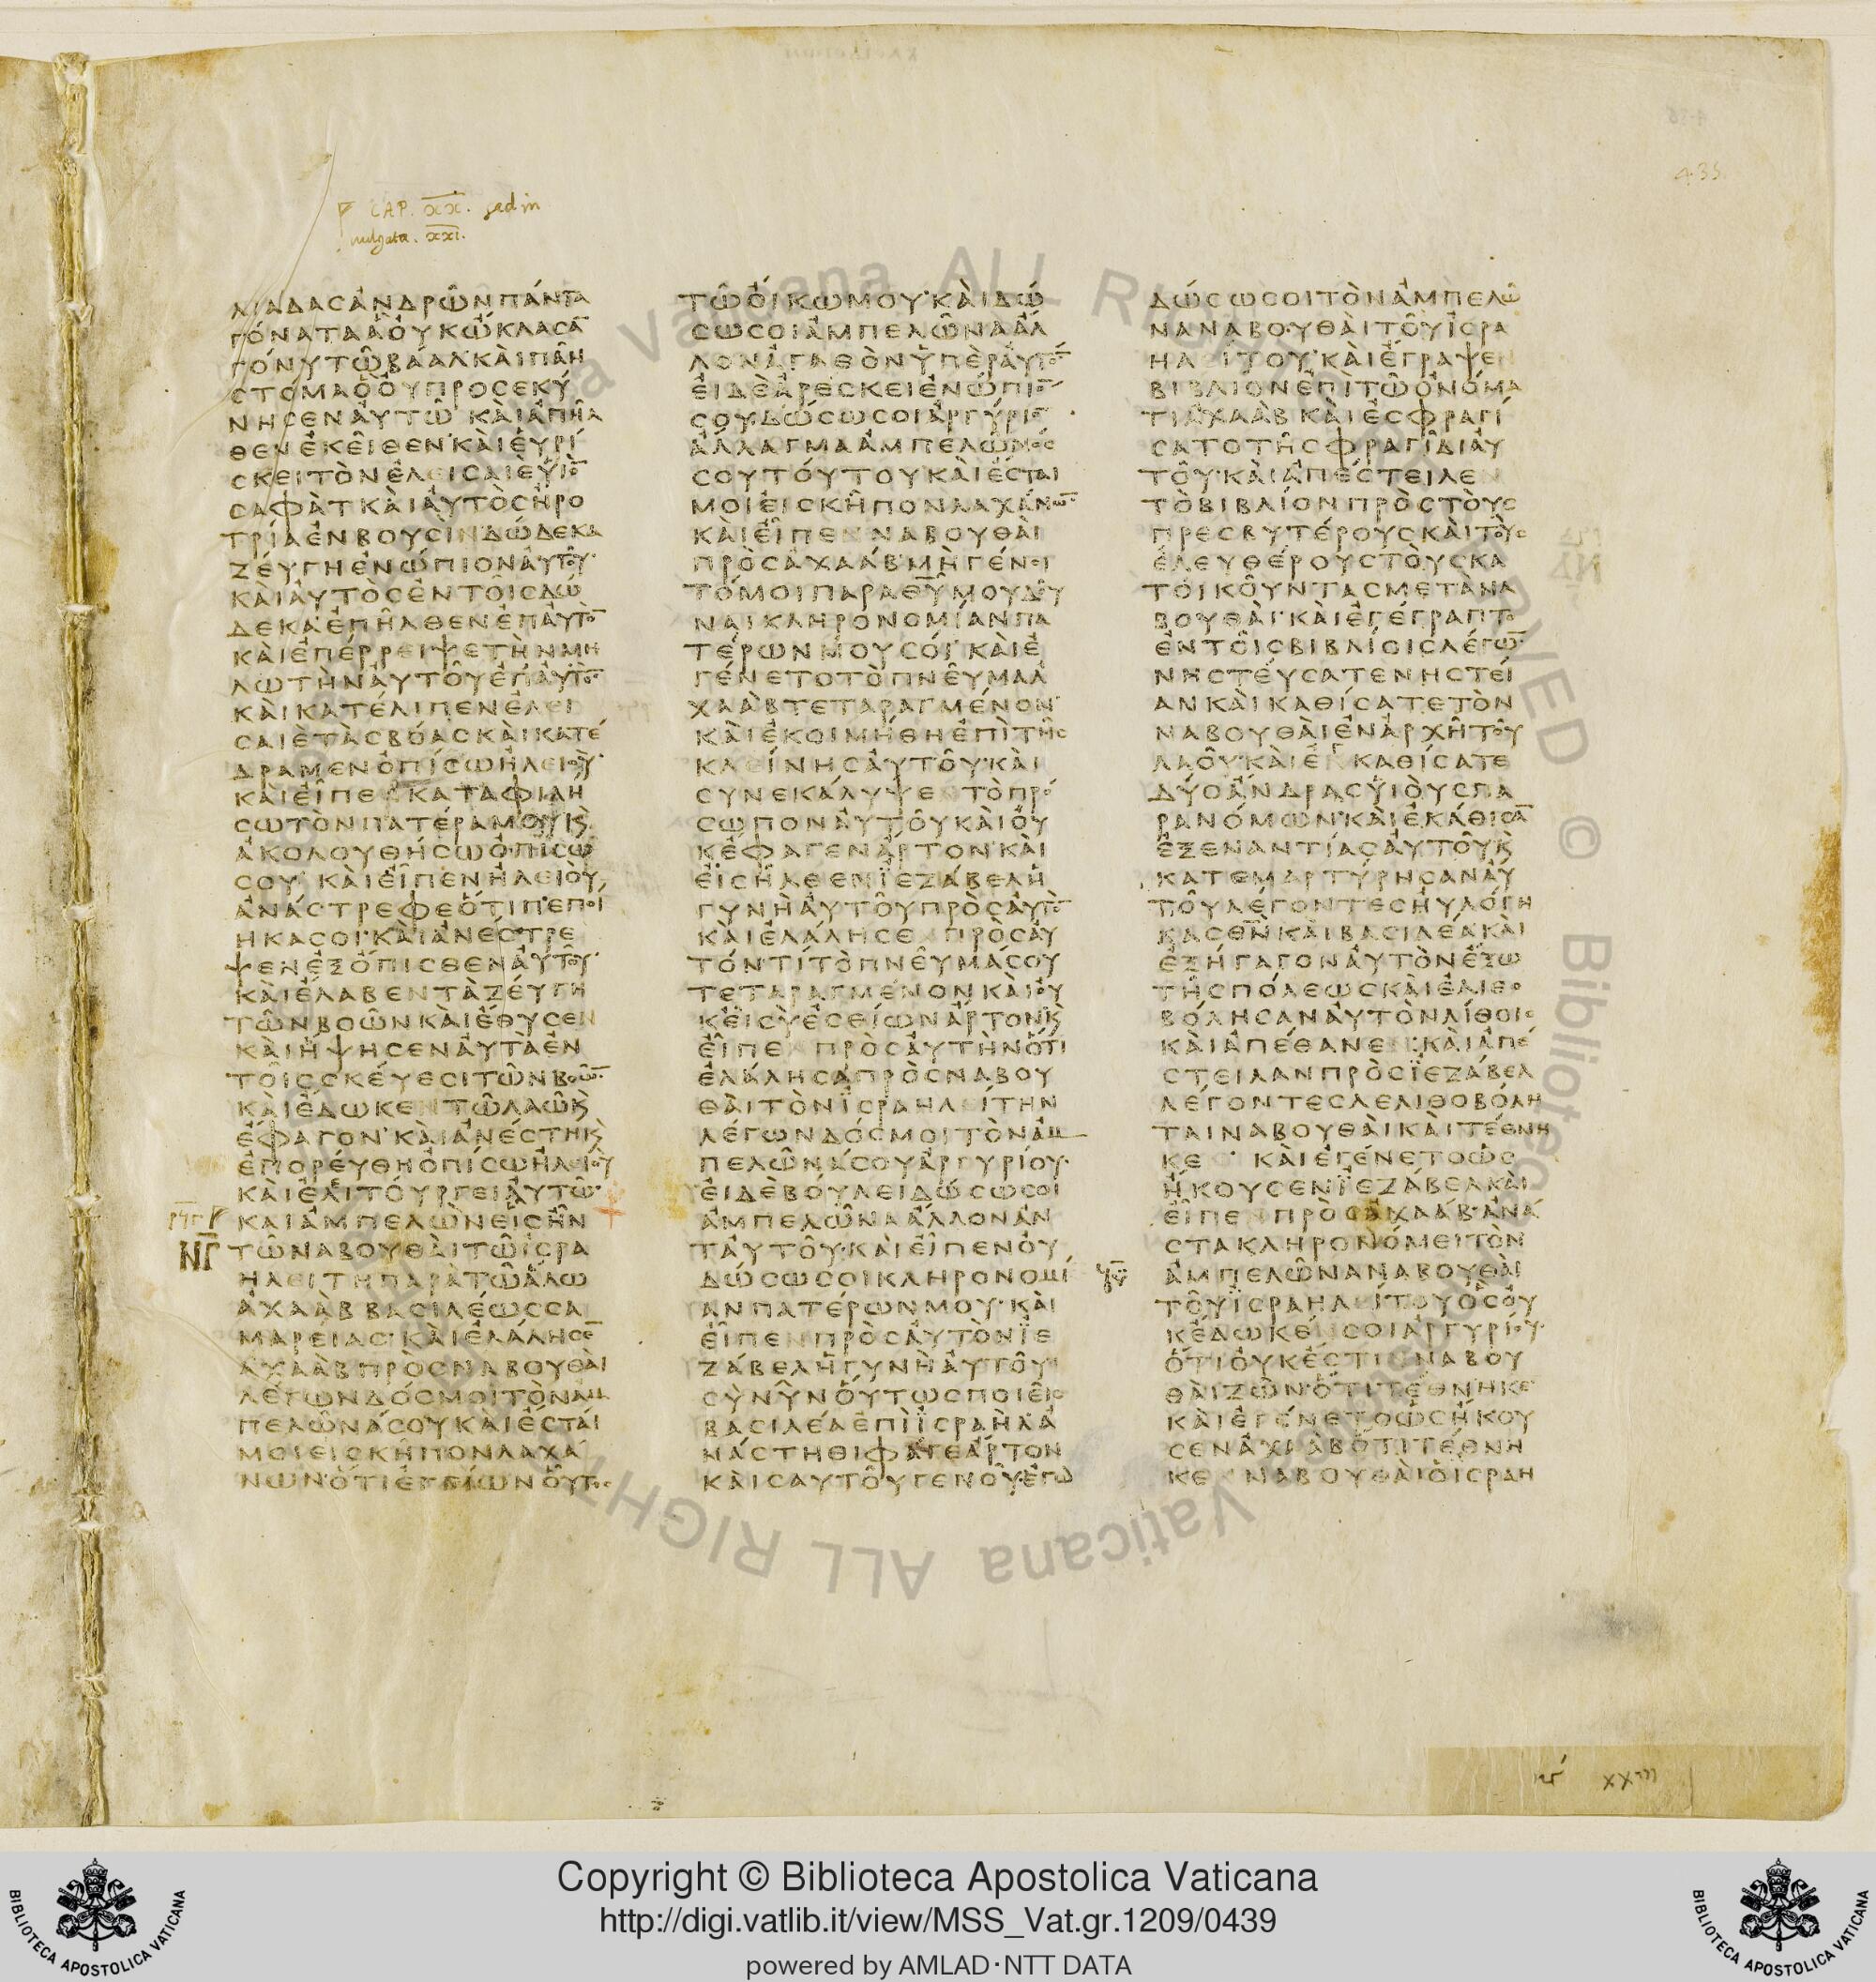 CAP. XX. sed in
vulgata. XXI.
435
ΛΙΑΔΑΣ ἈΝΔΡΩ͂Ν ΠΆΝΤΑ
ΓΌΝΑΤΑ ἊὈΥΚΏΚΛΑΣΑ̅
ΓΌΝΥΤΩ͂ΒΑΑΛΚᾺΙΠΑ͂Ν
ΣΤΌΜΑὋὈΥΠΡΟΣΕΚΎ
ΝΗΣΕΝἈΥΤΩ͂ΚᾺΙἈΠΗ͂Λ
ΘΕΝἘΚΕ͂ΙΘΕΝ·ΚᾺΙἘΥΡΊ
ΣΚΕΙΤῸΝἘΛΕΙΣΑΙΕὙΙΟ̅
ΣΑΦᾺΤΚᾺΙἈΥΤῸΣἨΡΟ
ΤΡΊΑἘΝΒΟΥΣῚΝΔΏΔΕΚΑ
ΖΈΥΓΗἘΝΏΠΙΟΝἈΥΤΟ͂Υ·
ΚᾺΙἈΥΤῸΣἘΝΤΟ͂ΙΣΔΏ
ΔΕΚΑ·ἘΠΗ͂ΛΘΕΝἘΠἈΥΤΟ̅
ΚᾺΙἘΠΈΡΡΕΙΨΕΤῊΝΜΗ
ΛΩΤῊΝἈΥΤΟ͂ΥἘΠἈΥΤΟ̅
ΚᾺΙΚΑΤΈΛΙΠΕΝἘΛΕΙ
ΣΑΙΕΤᾺΣΒΌΑΣΚᾺΙΚΑΤΈ
ΔΡΑΜΕΝὈΠΊΣΩἨΛΕΙΟΥ·
ΚᾺΙἘΙΠΕΝΚΑΤΑΦΙΛΉ
ΣΩΤῸΝΠΑΤΈΡΑΜΟΥΚ̀
ἈΚΟΛΟΥΘΉΣΩὈΠΊΣΩ
ΣΟΥ·ΚᾺΙἘΙΠΕΝἨΛΕΙΟΎ
ἈΝΆΣΤΡΕΦΕὍΤΙΠΕΠΟΊ
ΗΚΑΣΟΙ·ΚᾺΙἈΝΈΣΤΡΕ
ΨΕΝἘΞΌΠΙΣΘΕΝἈΥΤΟΥ·
ΚᾺΙἜΛΑΒΕΝΤᾺΖΈΥΓΗ
ΤΩ͂ΝΒΟΩ͂ΝΚᾺΙἜΘΥΣΕΝ
ΚᾺΙΉΨΗΣΕΝἈΥΤᾺἘΝ
ΤΟ͂ΙΣΣΚΈΥΕΣΙΤΩ͂ΝΒΟΩ̅
ΚᾺΙἜΔΩΚΕΝΤΩ͂ΛΑΩ͂Κ̀
ἜΦΑΓΟΝ·ΚᾺΙἈΝΈΣΤΗΚ̀
ἘΠΟΡΈΥΘΗὈΠΊΣΩἨΛΕΙΟΎ
ΚᾺΙἘΛΙΤΌΥΡΓΕΙἈΥΤΩ͂·
ΝΓ
ΚΑΙἈΜΠΕΛῺΝΕΙΣΗ͂Ν
ΤΩ͂ΝΑΒΟΥΘᾺΙΤΩ͂ΙΣΡΑ
ΗΛΕΙΤΗΠΑΡᾺΤΩ͂ἍΛΩ
ἈΧΑᾺΒΒΑΣΙΛΈΩΣΣΑ
ΜΑΡΕΊΑΣ·ΚᾺΙἘΛΆΛΗΣΕ̅
ἈΧΑᾺΒΠΡῸΣΝΑΒΟΥΘᾺΙ
ΛΈΓΩΝΔΌΣΜΟΙΤῸΝἈΜ
ΠΕΛΩ͂ΝΆΣΟΥΚᾺΙἜΣΤΑΙ
ΜΟΙΕΙΣΚΗ͂ΠΟΝΛΑΧΆ
ΝΩΝ·ὍΤΙἘΓΓΕΊΩΝὉΥΤΟΣ
ΤΩ͂ὌΙΚΩΜΟΥ·ΚᾺΙΔΏ
ΣΩΣΟΙἈΜΠΕΛΩ͂ΝΑἌΛ
ΛΟΝἈΓΑΘῸΝὙΠῈΡἈΥΤΟ̅
ἘΙΔῈἈΡΈΣΚΕΙἘΝΏΠΙΟ̅
ΣΟΥ·ΔΏΣΩΣΟΙἈΡΓΎΡΙΟ̅
ἌΛΛΑΓΜΑἈΜΠΕΛΩ͂ΝΟΣ
ΣΟΥΤΌΥΤΟΥΚᾺΙἜΣΤΑΙ
ΜΟΙἘΙΣΚΗ͂ΠΟΝΛΑΧΆΝΩ̅
ΚᾺΙἘΙΠΕΝΝΑΒΟΥΘᾺΙ
ΠΡῸΣἈΧΑᾺΒ·ΜῊΓΈΝΟΙ
ΤΌΜΟΙΠΑΡΑΘ̅Υ̅ΜΟΥΔΟΥ
ΝΑΙΚΛΗΡΟΝΟΜΊΑΝΠΑ
ΤΈΡΩΝΜΟΥΣΟΊ·ΚᾺΙἘ
ΓΈΝΕΤΟΤῸΠΝΕΥ͂ΜΑἈ
ΧΑᾺΒΤΕΤΑΡΑΓΜΈΝΟΝ·
ΚᾺΙἘΚΟΙΜΉΘΗἘΠῚΤΗ͂Σ
ΚΛΕΊΝΗΣἈΥΤΟ͂Υ·ΚᾺΙ
ΣΥΝΕΚΆΛΥΨΕΝΤῸΠΡΌ
ΣΩΠΟΝἈΥΤΟ͂ΥΚᾺΙὈΥ
ΚἜΦΑΓΕΝἌΡΤΟΝ·ΚᾺΙ
ἘΙΣΗ͂ΛΘΕΝΪΕΖΆΒΕΛἩ
ΓΥΝῊἈΥΤΟ͂ΥΠΡῸΣἈΥΤΟ̅
ΚᾺΙἘΛΆΛΗΣΕΝΠΡῸΣἈΥ
ΤΌΝ·ΤΊΤῸΠΝΕΥ͂ΜΆΣΟΥ
ΤΕΤΑΡΑΓΜΈΝΟΝΚᾺΙΟΥ
ΚΕΙΣῪἘΣΘΊΩΝἌΡΤΟΝΚ̀
ἘΙΠΕΝΠΡῸΣἈΥΤῊΝὍΤΙ
ἘΛΆΛΗΣΑΠΡῸΣΝΑΒΟΥ
ΘᾺΙΤῸΝΪΣΡΑΗΛΕΊΤΗΝ
ΛΈΓΩΝΔΌΣΜΟΙΤῸΝἈΜ
ΠΕΛΩ͂ΝΆΣΟΥἈΡΓΥΡΊΟΥ·
ἘΙΔῈΒΟΎΛΕΙΔΏΣΩΣΟΙ
ἈΜΠΕΛΩ͂ΝΑἌΛΛΟΝἈΝ
ΤΑΥΤΟ͂Υ·ΚᾺΙἘΙΠΕΝΟΥ
ΔΏΣΩΣΟΙΚΛΗΡΟΝΟΜΊ
ΑΝΠΑΤΈΡΩΝΜΟΥ·ΚᾺΙ
ἘΙΠΕΝΠΡῸΣἈΥΤῸΝΪΕ
ΖΆΒΕΛἩΓΥΝῊἈΥΤΟ͂Υ
ΣῪΝΥ͂ΝὉΎΤΩΣΠΟΙΕ͂ΙΣ
ΒΑΣΙΛΈΑἘΠῚΪΣΡΑῊΛἈ
ΝΆΣΤΗΘΙΦΆΓΕἌΡΤΟΝ
ΚᾺΙΣΑΥΤΟ͂ΥΓΕΝΟΥ͂·ἘΓΩ
ΔΏΣΩΣΟΙΤῸΝἈΜΠΕΛΩ͂
ΝΑΝΑΒΟΥΘᾺΙΤΟ͂ΥΙΣΡΑ
ΗΛΕΊΤΟΥ·ΚᾺΙἜΓΡΑΨΕΝ
ΒΙΒΛΊΟΝἘΠῚΤΩ͂ὈΝΌΜΑ
ΤΙἈΧΑᾺΒΚᾺΙἘΣΦΡΑΓΊ
ΣΑΤΟΤΗ͂ΣΦΡΑΓΙ͂ΔΙἈΥ
ΤΟ͂Υ·ΚᾺΙἈΠΈΣΤΕΙΛΕΝ
ΤῸΒΙΒΛΊΟΝΠΡῸΣΤῸΥΣ
ΠΡΕΣΒΥΤΈΡΟΥΣΚᾺΙΤΟΥΣ
ἘΛΕΥΘΈΡΟΥΣΤῸΥΣΚΑ
ΤΟΙΚΟΥ͂ΝΤΑΣΜΕΤᾺΝΑ
ΒΟΥΘᾺΙ·ΚᾺΙἘΓΈΓΡΑΠΤΟ
ἘΝΤΟ͂ΙΣΒΙΒΛΊΟΙΣΛΈΓΩ̅
ΝΗΣΤΈΥΣΑΤΕΝΗΣΤΕΊ
ΑΝΚᾺΙΚΑΘΊΣΑΤΕΤῸΝ
ΝΑΒΟΥΘᾺΙἘΝἈΡΧΗ͂ΤΟΥ
ΛΑΟΥ͂·ΚᾺΙἘΓΚΑΘΊΣΑΤΕ
ΔΎΟἌΝΔΡΑΣὙΙΟῪΣΠΑ
ΡΑΝΌΜΩΝ·ΚᾺΙἘΚΆΘΙΣΑ̅
ἘΞΕΝΑΝΤΊΑΣἈΥΤΟ͂ΥΚ̀
ΚΑΤΕΜΑΡΤΎΡΗΣΑΝἈΥ
ΤΟ͂ΥΛΈΓΟΝΤΕΣΗΥΛΌΓΗ
ΚΑΣΘ̅Ν̅ΚᾺΙΒΑΣΙΛΈΑΚᾺΙ
ἘΞΉΓΑΓΟΝἈΥΤῸΝἜΞΩ
ΤΗ͂ΣΠΌΛΕΩΣΚᾺΙἘΛΙΘΟ
ΒΌΛΗΣΑΝἈΥΤῸΝΛΊΘΟΙΣ
ΚᾺΙἈΠΈΘΑΝΕΝ·ΚᾺΙἈΠΈ
ΣΤΕΙΛΑΝΠΡῸΣΪΕΖΆΒΕΛ
ΛΈΓΟΝΤΕΣΛΕΛΙΘΟΒΌΛΗ
ΤΑΙΝΑΒΟΥΘᾺΙΚᾺΙΤΈΘΝΗ
ΚΕΝ·ΚᾺΙἘΓΈΝΕΤΟὩΣ
ἬΚΟΥΣΕΝΪΕΖΆΒΕΛΚᾺΙ
ἘΙΠΕΝΠΡῸΣἈΧΑᾺΒ·ἈΝΆ
ΣΤΑΚΛΗΡΟΝΌΜΕΙΤῸΝ
ἈΜΠΕΛΩ͂ΝΑΝΑΒΟΥΘᾺΙ
ΤΟ͂ΥΪΣΡΑΗΛΕΊΤΟΥὋΣΟΥ
ΚἜΔΩΚΕΝΣΟΙἈΡΓΥΡΊΟΥ·
ὍΤΙΟΥΚἜΣΤΙΝΝΑΒΟΥ
ΘᾺΙΖΩ͂Ν·ὍΤΙΤΈΘΝΗΚΕ
ΚᾺΙἘΓΈΝΕΤΟὩΣἬΚΟΥ
ΣΕΝἈΧΑᾺΒὍΤΙΤΈΘΝΗ
ΚΕΝΝΑΒΟΥΘᾺΙὉΙΣΡΑΗ
Copyright © Biblioteca Apostolica Vaticana
http://digi.vatlib.it/view/MSS_Vat.gr.1209/0439
powered by AMLAD·NTT DATA
BIBLIOTECA APOSTOLICA VATICANA
BIBLIOTECA APOSTOLICA VATICANA